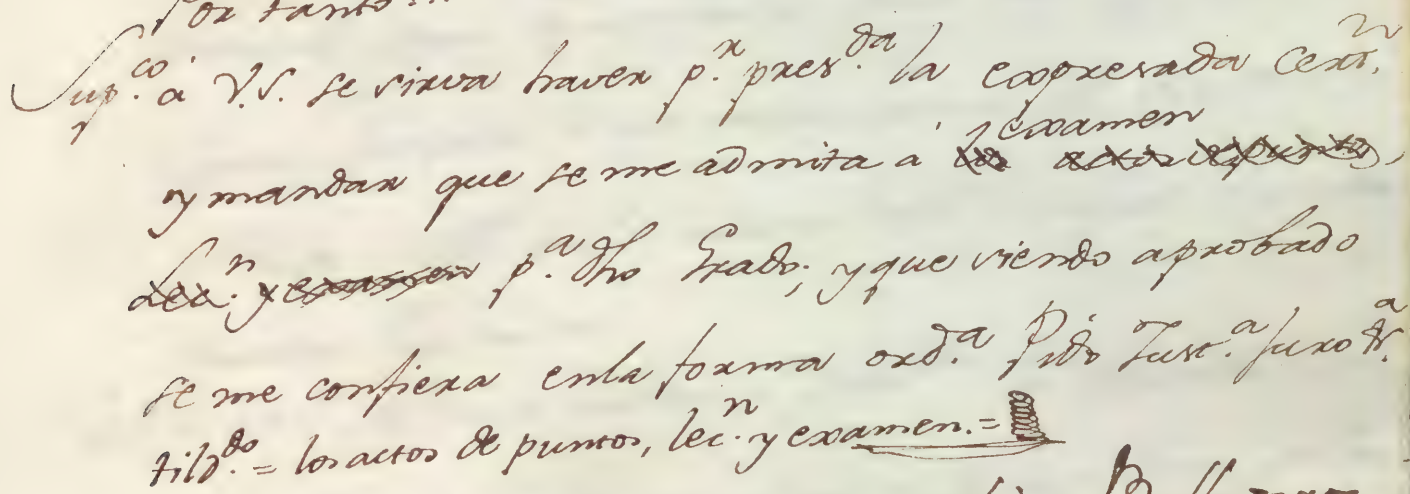 Por tanto...
Sup.co á V.S. se sirva haver p.r pres.da la expresada Cert.n
examen
y mandar que se me admita á los actos de puntos,
Lec.n y examen p.a dho Grado; y que siendo aprobado
se me confiera enla forma ord.a Pido Just.a Juro &.a
tild.do = los actos de puntos, lec.n y examen. =